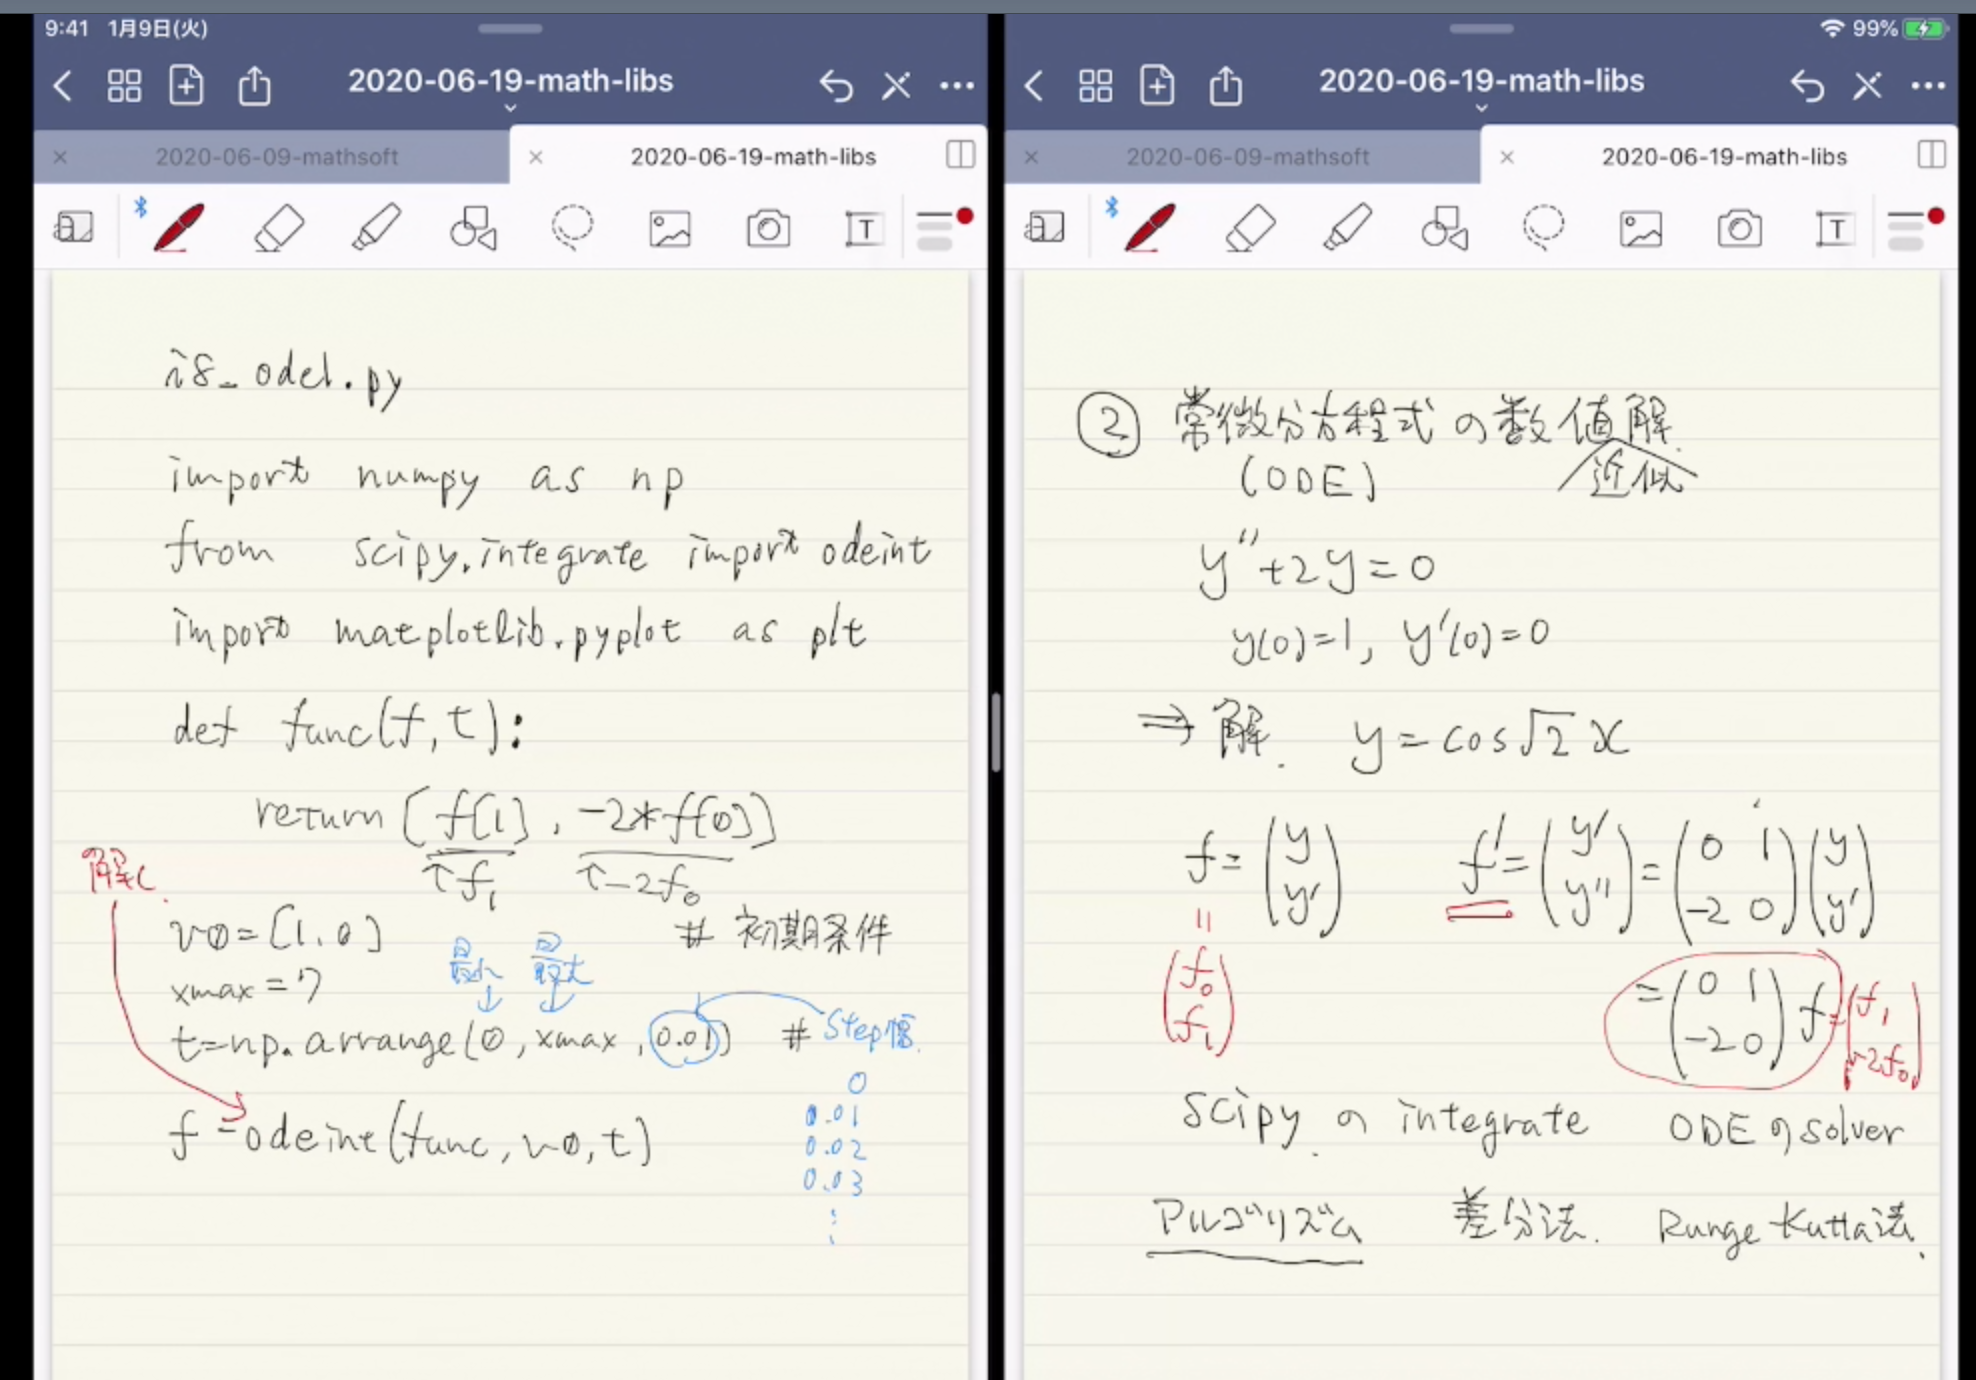 9:41 1月9日(火)
2020-06-19-math-libs
2020-06-09-mathsoft
2020-06-19-math-libs
T
i8_ode1.py
import numpy as np
from scipy.integrate import odeint
import matplotlib.pyplot as plt
def func(f,t):
return [f[1], -2*f[0]]
↑f₁ ↑-2f₀
解く
v0=[1,0] # 初期条件
最小 最大
↓ ↓
xmax=7
t=np.arrange(0, xmax, 0.01) # Step幅.
0
0.01
0.02
0.03
⋮
f=odeint(func, v0, t)
99%
2020-06-19-math-libs
2020-06-09-mathsoft
2020-06-19-math-libs
T
② 常微分方程式の数値解.
(ODE) 近似
y''+2y=0
y(0)=1, y'(0)=0
⇒ 解. y=cos√2 x
f=(y y') f'=(y' y'')=(0 1 -2 0)(y y')
=(f₀ f₁) =(0 1 -2 0)f=(f₁ -2f₀)
Scipy の integrate ODEのsolver
アルゴリズム 差分法. Runge-Kutta法.